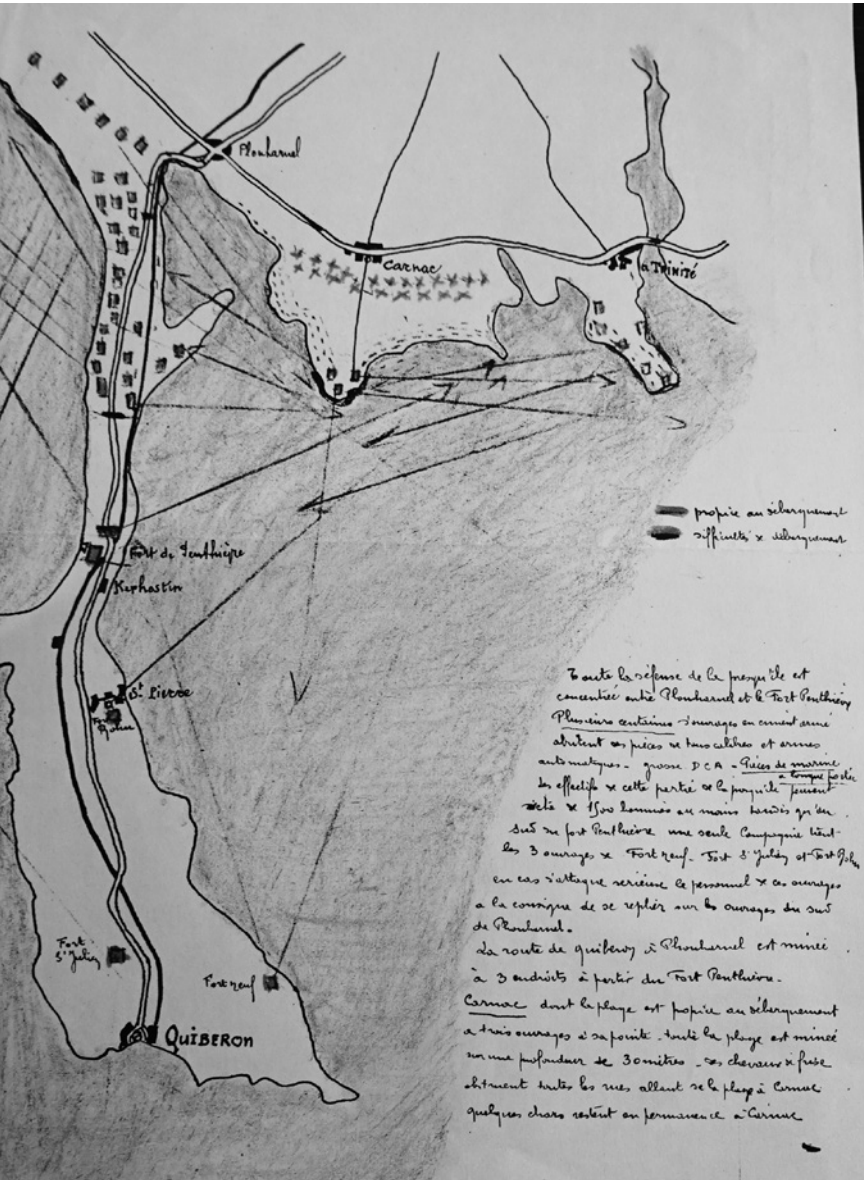 Plouharnel
Carnac
La Trinité
propice au débarquement
difficultés de débarquement
Fort de Penthièvre
Kerhostin
St Pierre
Fort
QUIBERON
Fort
St Julien
Fort neuf
Toute la défense de la presqu'île est
concentrée entre Plouharnel et le Fort Penthièvre
Plusieurs centaines d'ouvrages en ciment armé
abritent des pièces de tous calibres et armes
automatiques - grosse DCA - Pièces de marine
à longue portée
Les effectifs de cette partie de la presqu'île
de 1500 hommes au moins tandis qu'au
Sud du fort Penthièvre une seule Compagnie tient
les 3 ouvrages de Fort neuf - Fort St Julien et Fort
en cas d'attaque sérieuse le personnel de ces ouvrages
a la consigne de se replier sur les ouvrages du sud
de Plouharnel.
La route de Quiberon à Plouharnel est minée
à 3 endroits à partir du Fort Penthièvre.
Carnac dont la plage est propice au débarquement
a trois ouvrages à sa pointe. toute la plage est minée
sur une profondeur de 30 mètres - des chevaux de frise
obstruent toutes les rues allant de la plage à Carnac
quelques chars restent en permanence à Carnac